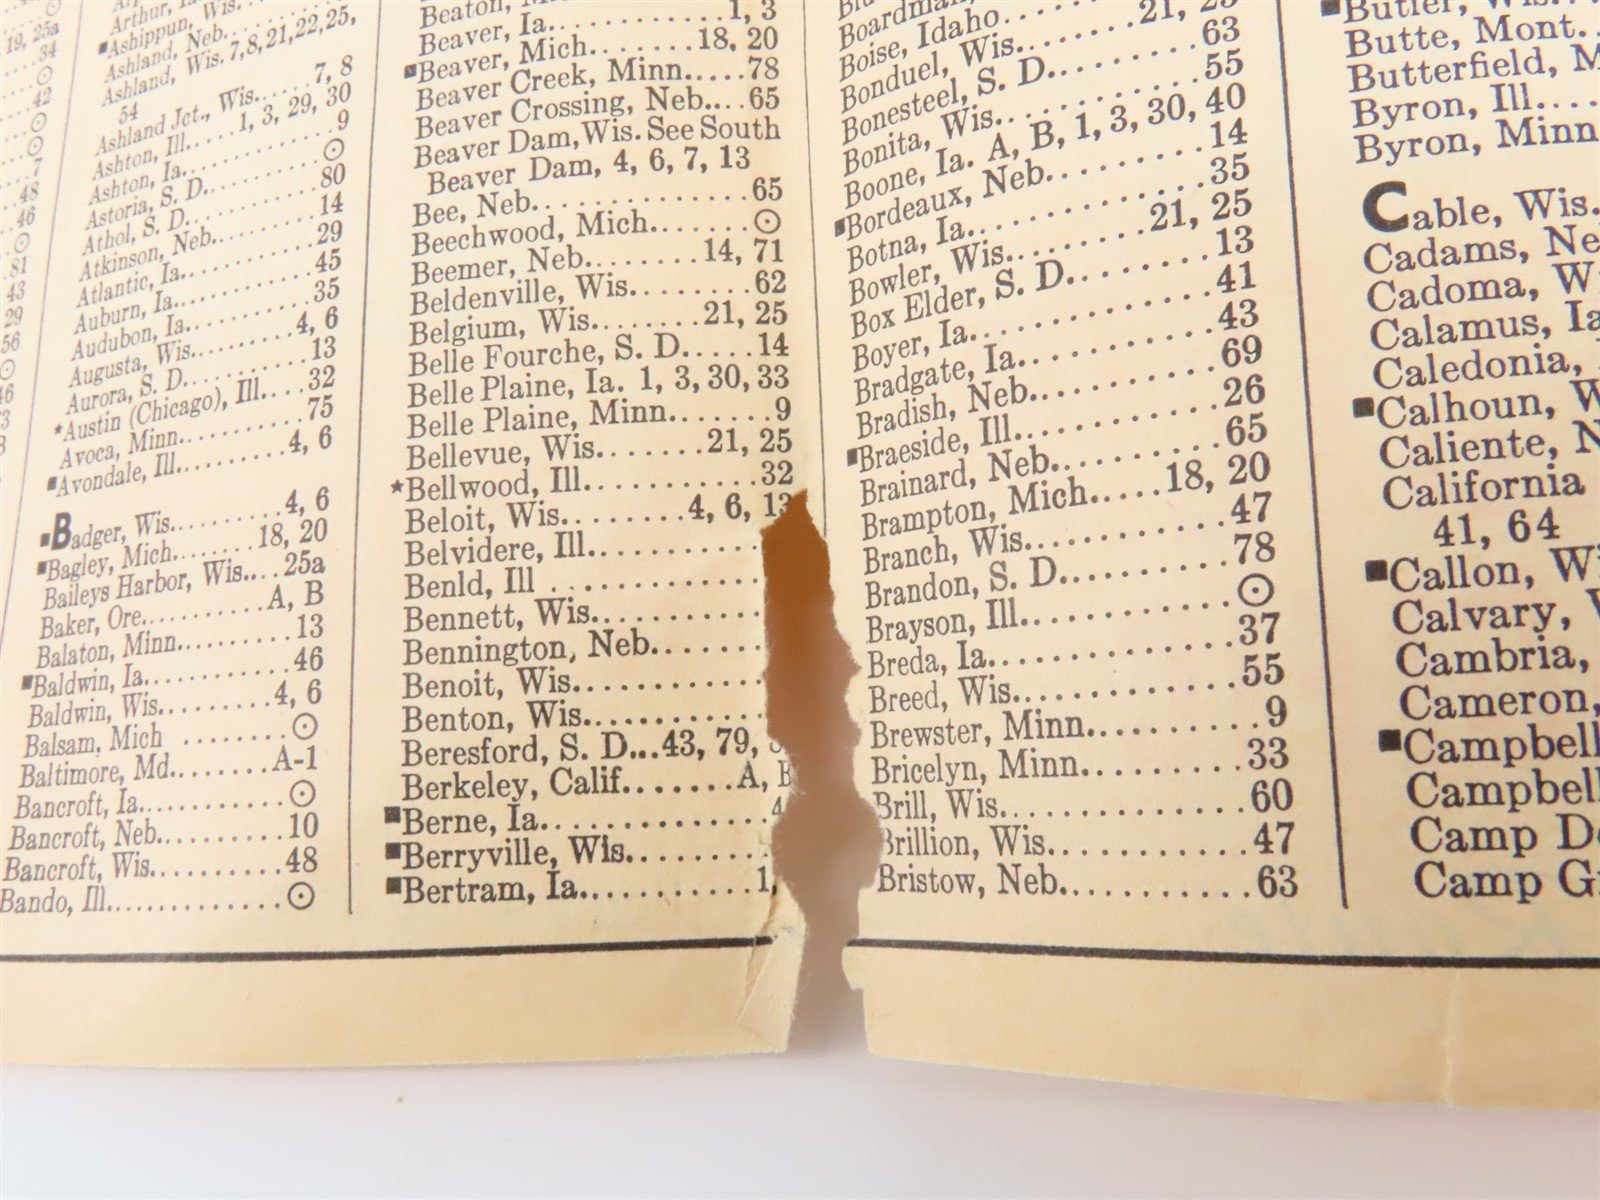 19, 25a
34
⊙
42
⊙
⊙
7
48
46
⊙
81
43
29
56
⊙
46
Arthur,
■Ashippun, Wis.
Ashland, Neb.
Ashland, Wis. 7, 8, 21, 22, 25,
54
Ashland Jct., Wis......7, 8
Ashton, Ill....1, 3, 29, 30
Ashton, Ia..............9
Astoria, S. D...........⊙
Athol, S. D............80
Atkinson, Neb..........14
Atlantic, Ia...........29
Auburn, Ia.............45
Audubon, Ia............35
Augusta, Wis..........4, 6
Aurora, S. D...........13
★Austin (Chicago), Ill....32
Avoca, Minn............75
■Avondale, Ill.........4, 6
■Badger, Wis..........4, 6
■Bagley, Mich........18, 20
Baileys Harbor, Wis....25a
Baker, Ore...........A, B
Balaton, Minn..........13
■Baldwin, Ia............46
Baldwin, Wis..........4, 6
Balsam, Mich ........⊙
Baltimore, Md........A-1
Bancroft, Ia............⊙
Bancroft, Neb..........10
Bancroft, Wis..........48
Bando, Ill..............⊙
Beaton,
Beaver, Ia............1, 3
■Beaver, Mich........18, 20
Beaver Creek, Minn.....78
Beaver Crossing, Neb....65
Beaver Dam, Wis. See South
Beaver Dam, 4, 6, 7, 13
Bee, Neb...............65
Beechwood, Mich.......⊙
Beemer, Neb........14, 71
Beldenville, Wis.........62
Belgium, Wis........21, 25
Belle Fourche, S. D.....14
Belle Plaine, Ia. 1, 3, 30, 33
Belle Plaine, Minn.......9
Bellevue, Wis.......21, 25
★Bellwood, Ill...........32
Beloit, Wis........4, 6, 13
Belvidere, Ill..........
Benld, Ill .............
Bennett, Wis...........
Bennington, Neb.......
Benoit, Wis............
Benton, Wis............
Beresford, S. D...43, 79,
Berkeley, Calif.......A, B
■Berne, Ia..............4
■Berryville, Wis.........
■Bertram, Ia...........1,
Boardman,
Boise, Idaho
Bonduel, Wis.......21, 25
Bonesteel, S. D........63
Bonita, Wis............55
Boone, Ia. A, B, 1, 3, 30, 40
■Bordeaux, Neb.........14
Botna, Ia..............35
Bowler, Wis........21, 25
Box Elder, S. D........13
Boyer, Ia..............41
Bradgate, Ia...........43
Bradish, Neb...........69
■Braeside, Ill...........26
Brainard, Neb..........65
Brampton, Mich.....18, 20
Branch, Wis............47
Brandon, S. D..........78
Brayson, Ill............⊙
Breda, Ia..............37
Breed, Wis.............55
Brewster, Minn..........9
Bricelyn, Minn.........33
Brill, Wis..............60
Brillion, Wis...........47
Bristow, Neb...........63
■Butler, Wis.
Butte, Mont.
Butterfield, M
Byron, Ill....
Byron, Minn
Cable, Wis.
Cadams, Ne
Cadoma, W
Calamus, Ia
Caledonia,
■Calhoun, W
Caliente, N
California
41, 64
■Callon, Wi
Calvary,
Cambria,
Cameron,
■Campbell
Campbell
Camp D
Camp G